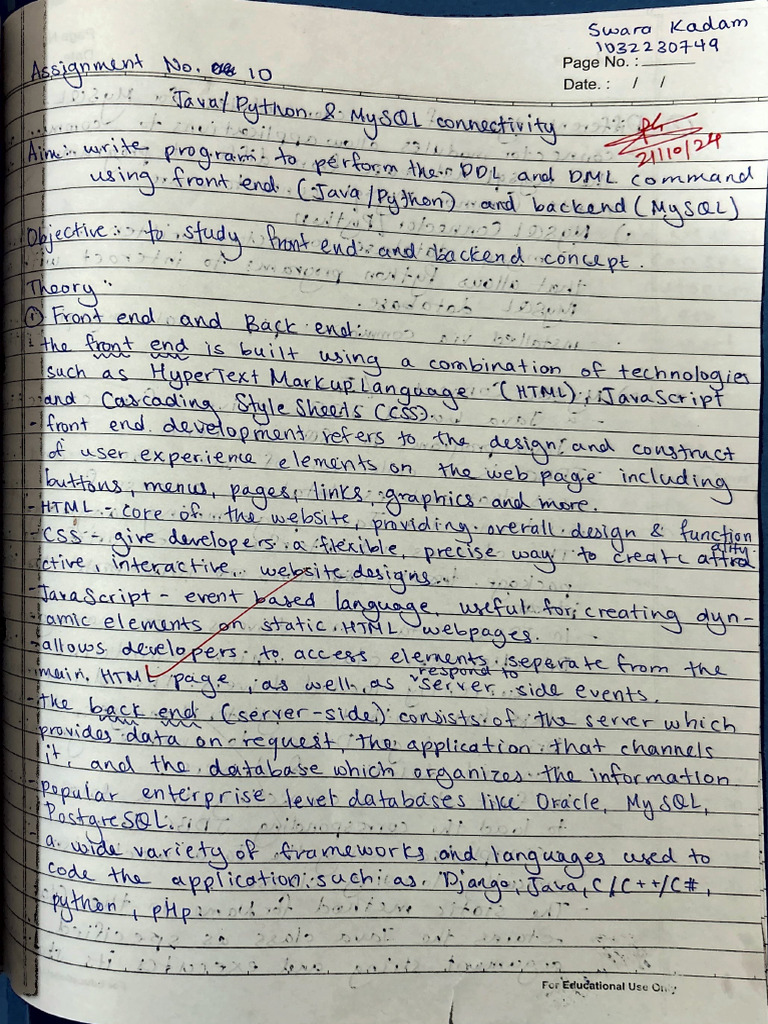 Swara Kadam
1032230749
Page No. :
Date. : / /
Assignment No. 10
Java/Python & MySQL connectivity
21/10/24
Aim: write program to perform the DDL and DML command
using front end (Java/Python) and backend (MySQL)
Objective: to study front end and backend concept.
Theory:
① Front end and Back end:
the front end is built using a combination of technologies
such as HyperText Markup Language (HTML), JavaScript
and Cascading Style Sheets (CSS).
- front end development refers to the design and construct
of user experience elements on the web page including
buttons, menus, pages, links, graphics and more.
- HTML - core of the website, providing overall design & functionality.
- CSS - give developers a flexible, precise way to create attra
ctive, interactive website designs.
- JavaScript - event based language, useful for creating dyn-
amic elements on static HTML webpages.
- allows developers to access elements seperate from the
main HTML page, as well as respond to server side events.
- the back end (server-side) consists of the server which
provides data on request, the application that channels
it, and the database which organizes the information
- popular enterprise level databases like Oracle, MySQL,
PostgreSQL.
- a wide variety of frameworks and languages used to
code the application such as Django, Java, C/C++/C#,
python, pHp
For Educational Use Only